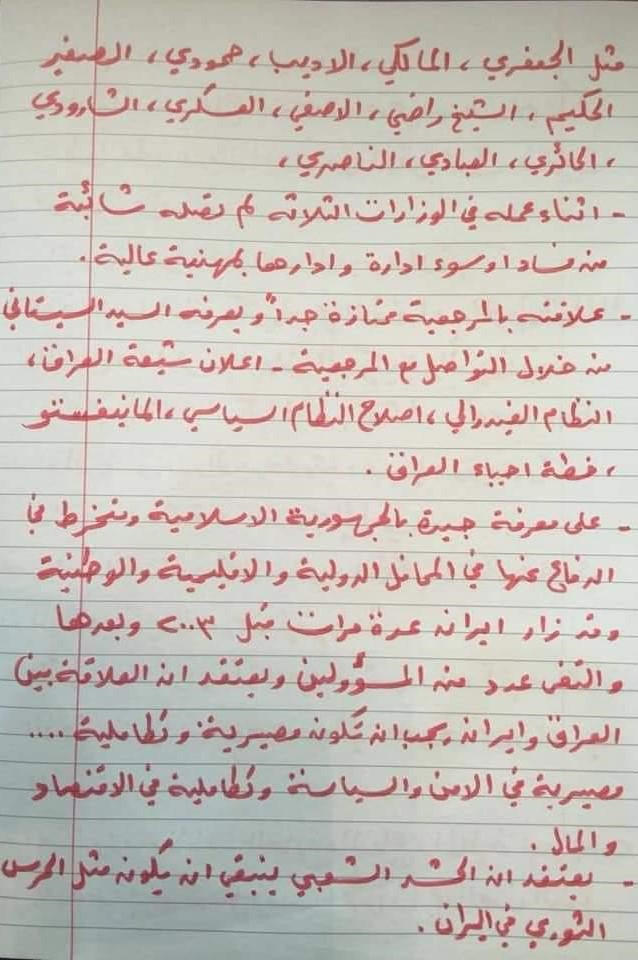 مثل الجعفري ، المالكي ، الاديب ، حمودي ، الصغير
الحكيم ، الشيخ راضي ، الاصفي ، العسكري ، الشارودي
، الحائري ، العبادي ، الناصري ،
- اثناء عمله في الوزارات الثلاثه لم تصله شائبة
من فساد او سوء ادارة وادارها بمهنية عالية .
- علاقته بالمرجعية ممتازة جداً ويعرفه السيد السيستاني
من خلال التواصل مع المرجعية - اعلان شيعة العراق ،
النظام الفيدرالي ، اصلاح النظام السياسي ، المانيفستو
، خطة احياء العراق .
- على معرفة جيدة بالجمهورية الاسلامية ومنخرط في
الدفاع عنها في المحافل الدولية والاقليمية والوطنية
وقد زار ايران عدة مرات قبل ٢٠٠٣ وبعدها
والتقى عدد من المسؤولين ويعتقد ان العلاقة بين
العراق وايران يجب ان تكون مصيرية وتكاملية ....
مصيرية في الامن والسياسة وتكاملية في الاقتصاد
والمال .
- يعتقد ان الحشد الشعبي ينبغي ان يكون مثل الحرس
الثوري في ايران .